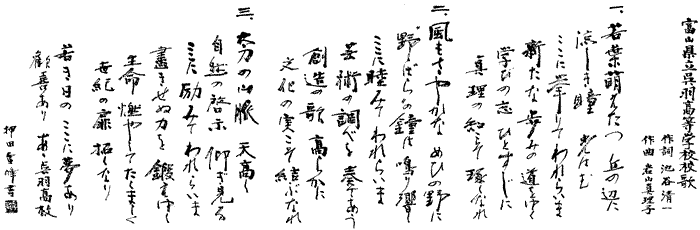 富山県立呉羽高等学校校歌
作詞 池谷清一
作曲 岩山真理子
一、若葉萌えたつ 丘の辺に
涼しき瞳
ここに挙りてわれらいま
新たな歩みの道ゆく
学びの志ひとすじに
真理の知こそ琢くなれ
二、風もさやかな めひの野に
野ばらの鐘は鳴り響く
ここに睦みてわれらいま
芸術の調べを奏であう
創造の歌 高らかに
文化の実こそ結ぶなれ
三、太刀の山脈 天高く
自然の啓示 仰ぎ見る
ここに励みてわれらいま
尽きせぬ力を鍛えゆく
生命燃やしてたくましく
世紀の扉 拓くなり
若き日のここに夢あり
歓喜あり あゝ呉羽高校